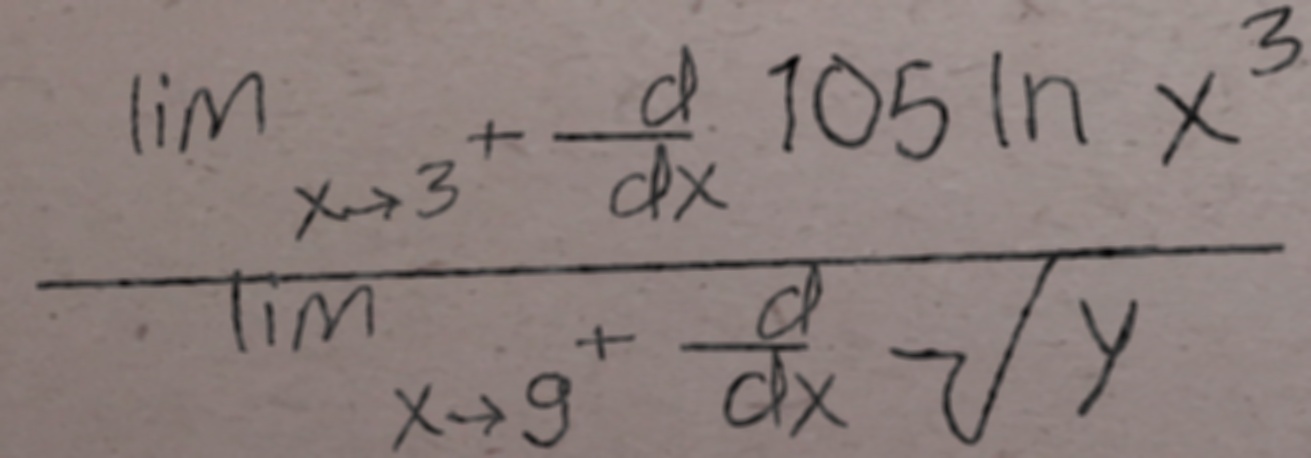 lim x→3⁺ d/dx 105 ln x³
lim x→9⁺ d/dx √y